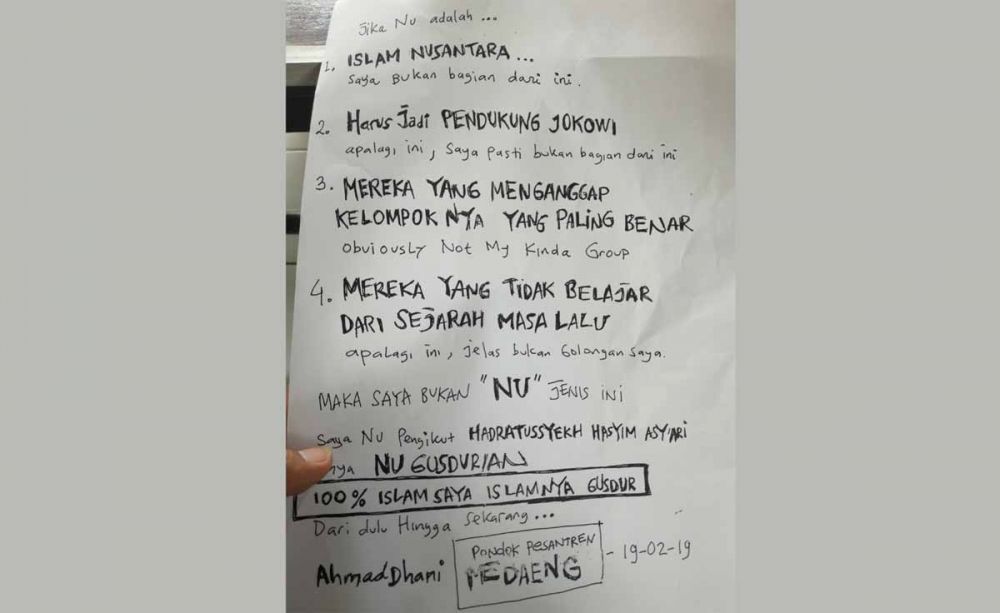 Jika NU adalah ...
1. ISLAM NUSANTARA ...
Saya Bukan bagian dari ini.
2. Harus Jadi PENDUKUNG JOKOWI
apalagi ini, Saya pasti bukan bagian dari ini
3. MEREKA YANG MENGANGGAP
KELOMPOK NYA YANG PALING BENAR
Obviously Not My Kinda Group
4. MEREKA YANG TIDAK BELAJAR
DARI SEJARAH MASA LALU
apalagi ini, jelas bukan Golongan saya.
MAKA SAYA BUKAN "NU" JENIS INI
Saya NU Pengikut HADRATUSSYEKH HASYIM ASY'ARI
NU GUSDURIAN
100% ISLAM SAYA ISLAMNYA GUSDUR
Dari dulu Hingga Sekarang...
Ahmad Dhani
PONDOK PESANTREN
MEDAENG
- 19-02-19